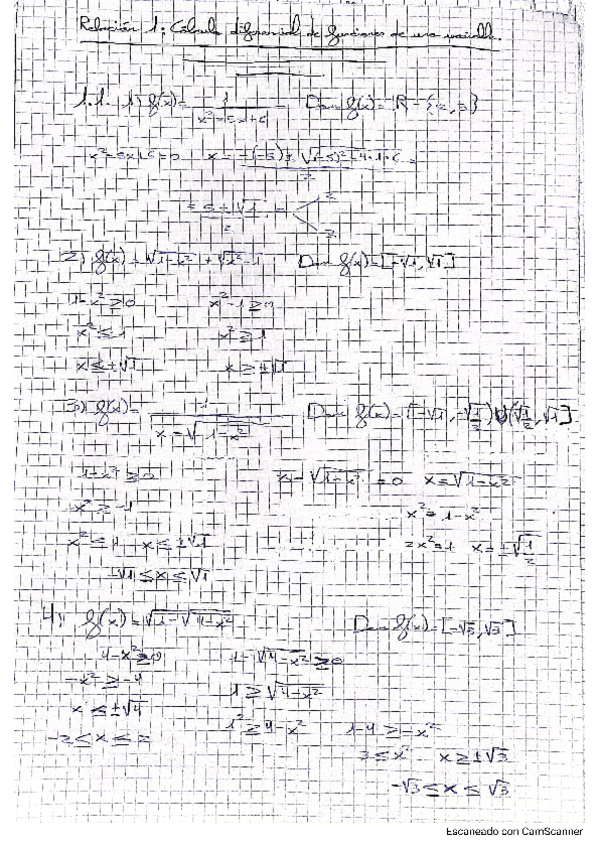 Relación 1: Cálculo diferencial de funciones de una variable.
1.1. 1) f(x) = 1/(x²-5x+6) = Dom f(x) = R - {2,3}
x²-5x+6=0 x = -(-5)± √(-5)²-4·1·6 =
= 5±√1 / 2 =
2) f(x) = √1-x² + √x²-1 Dom f(x) = [-√1, √1]
1-x² ≥ 0 x²-1 ≥ 0
x² ≤ 1 x² ≥ 1
x ≤ ±√1 x ≥ ±√1
3) f(x) = 1/(x-√1-x²) Dom f(x) = [-√1, -√1/2) U (√1/2, √1]
1-x² ≥ 0 x-√1-x² = 0 x = √1-x²
-x² ≥ -1 x² = 1-x²
x² ≤ 1 x ≤ ±√1 = x² = 1 x = ±√1/2
-√1 ≤ x ≤ √1
4) f(x) = √1-√4-x² Dom f(x) = [-√3, √3]
4-x² ≥ 0 1-√4-x² ≥ 0
-x² ≥ -4 1 ≥ √4-x²
x ≤ ±√4 1² ≥ 4-x² 1-4 ≥ -x²
-2 ≤ x ≤ 2 3 ≤ x² x ≥ ±√3
-√3 ≤ x ≤ √3
Escaneado con CamScanner